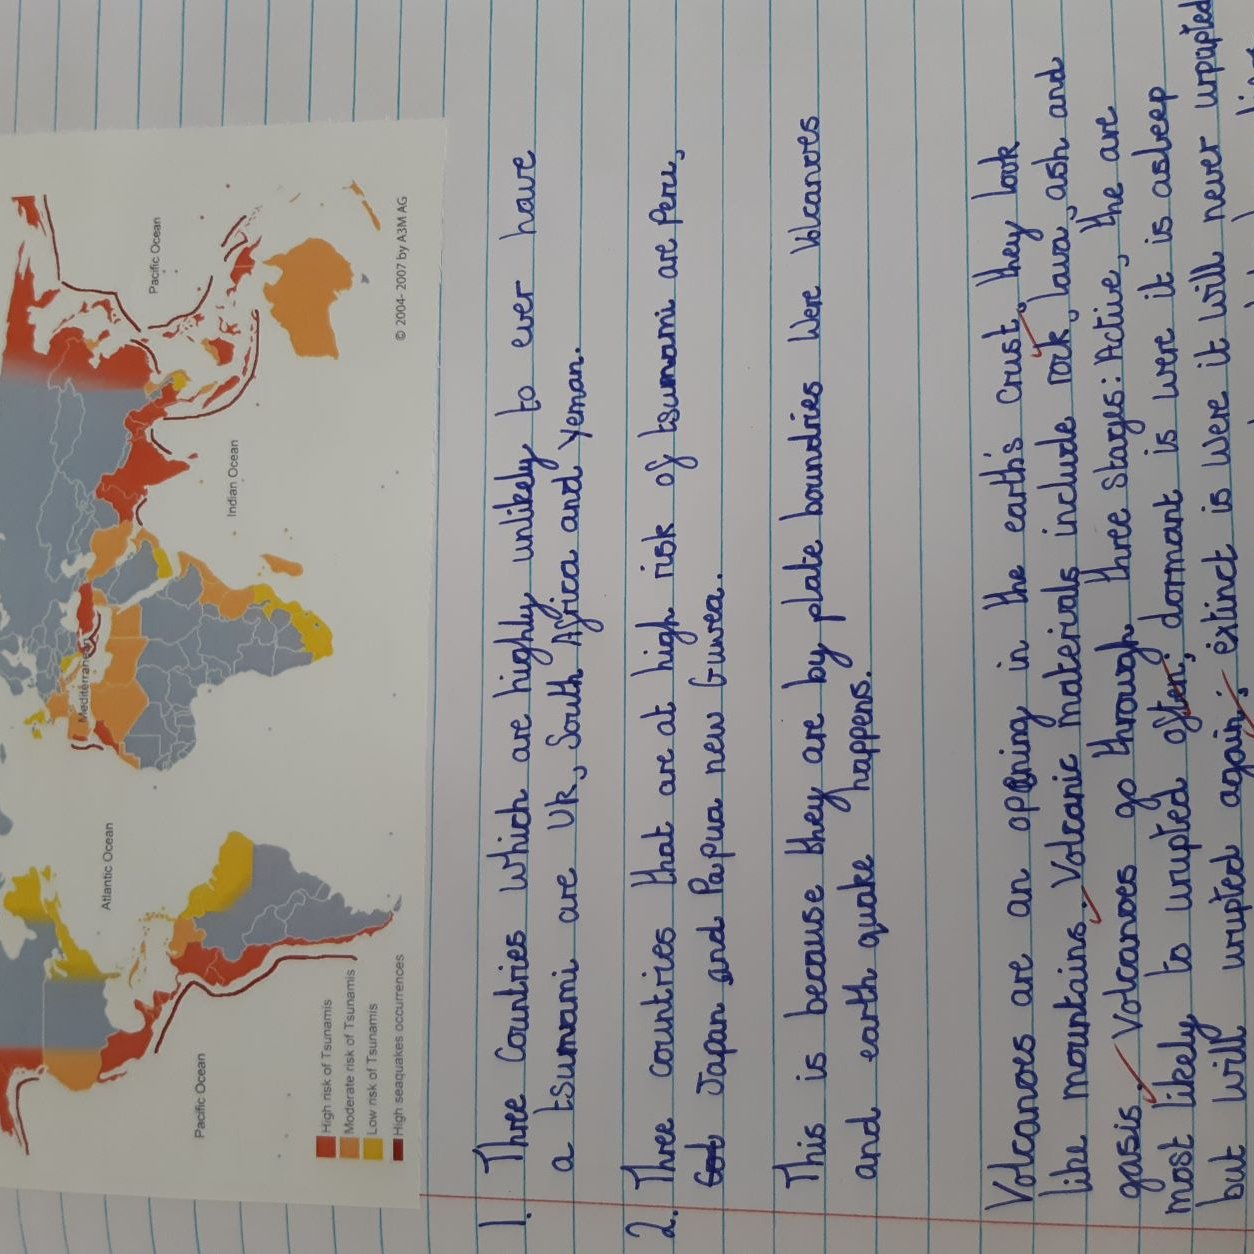 Pacific Ocean
Atlantic Ocean
Mediterranean
Indian Ocean
Pacific Ocean
High risk of Tsunamis
Moderate risk of Tsunamis
Low risk of Tsunamis
High seaquakes occurrences
© 2004- 2007 by A3M AG
1. Three Countries Which are highly unlikely to ever have
a tsunami are UK, South Africa and Yeman.
2. Three countries that are at high risk of tsunami are Peru,
Japan and Papua new Gunea.
This is because they are by plate boundries Were Volcanoes
and earth quake happens.
Volcanoes are an opening in the earth's crust, they look
like mountains. Volcanic materials include rock, lava, ash and
gasis. Volcanoes go through three Stages: Active, the are
most likely to urupted often; dormant is were it is asleep
but will urupted again; extinct is were it will never urupted